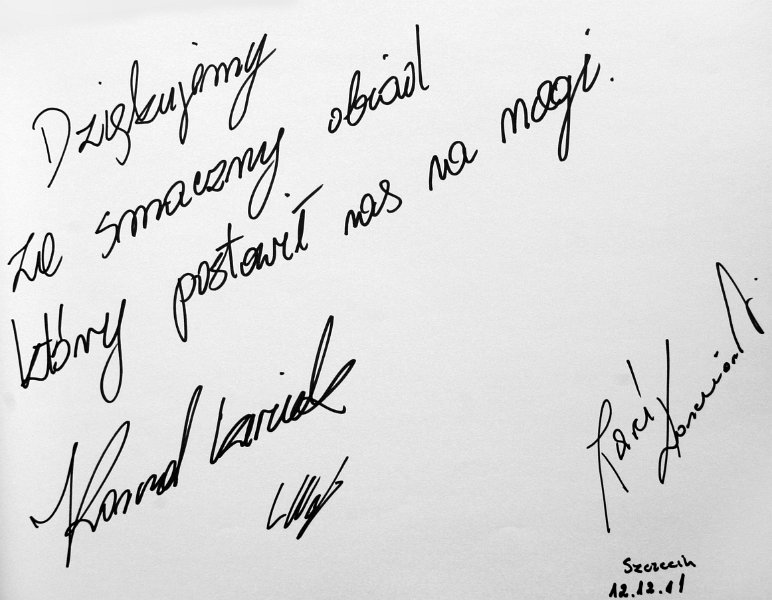 Dziękujemy
za smaczny obiad
który postawił nas na nogi.
Konrad
Szczecin
12.12.11